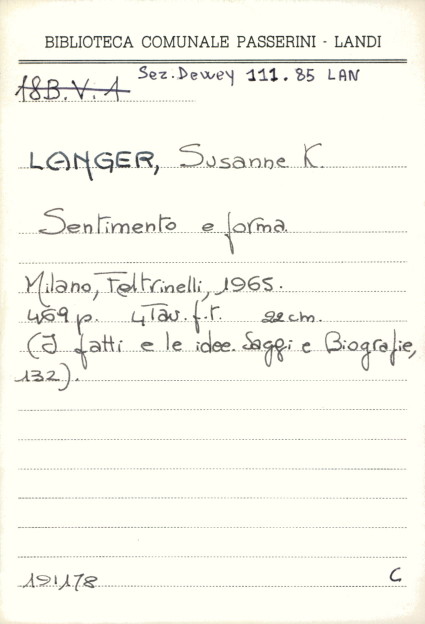 BIBLIOTECA COMUNALE PASSERINI - LANDI
Sez. Dewey 111.85 LAN
18B.V.1
LANGER, Susanne K.
Sentimento e forma
Milano, Feltrinelli, 1965.
469 p. 4 Tav. f.t. 22 cm.
(I fatti e le idee. Saggi e Biografie,
132).
191178
C